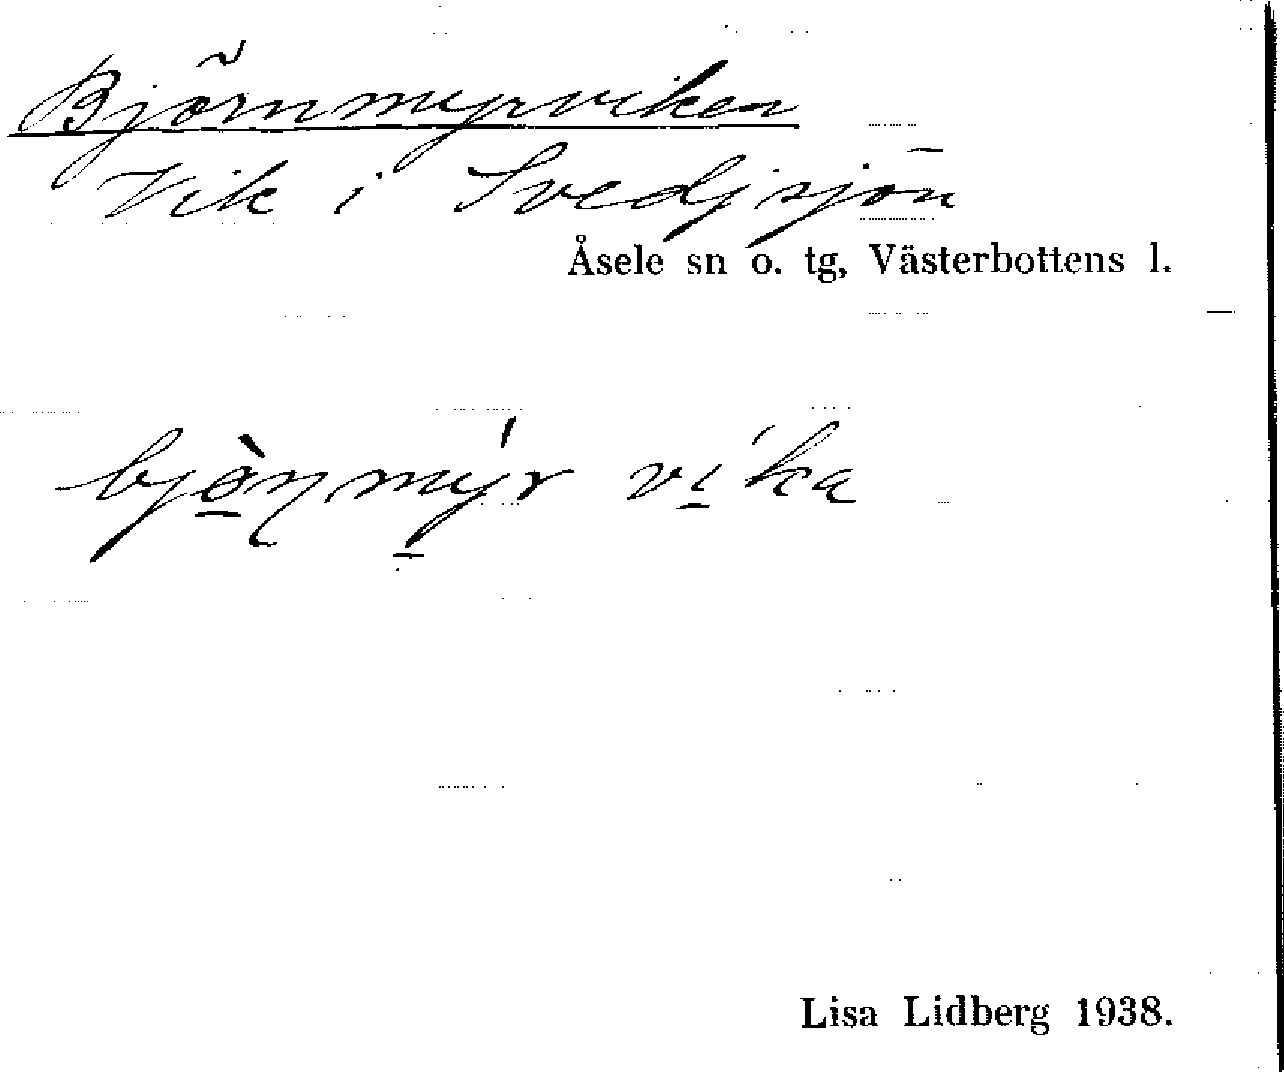 Björnmyrviken
Vik i Svedjsjön
Åsele sn o. tg, Västerbottens l.
bjò̠ɳmý̠r ví̠ka
Lisa Lidberg 1938.